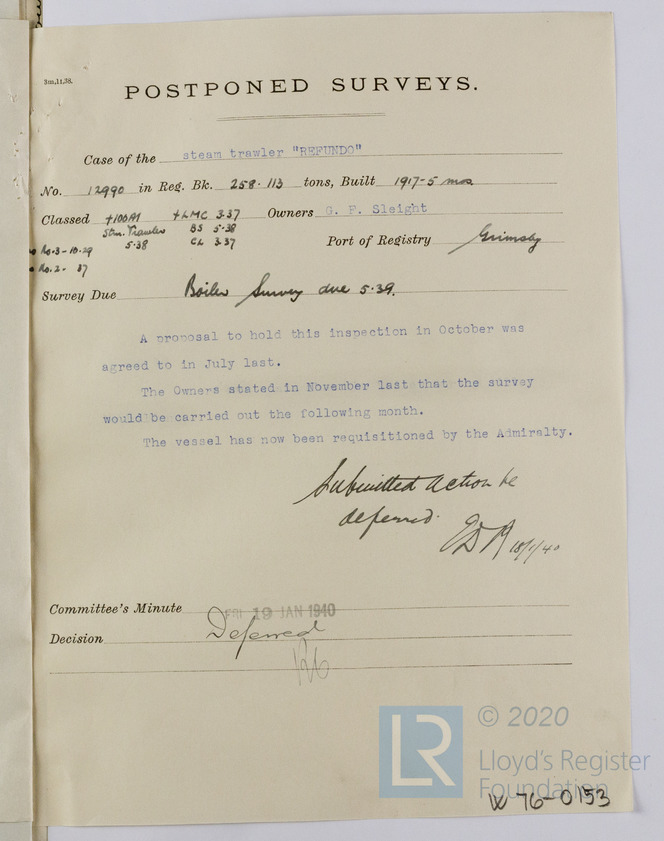 3m,11,38.
POSTPONED SURVEYS.
Case of the steam trawler "REFUNDO"
No. 12990 in Reg. Bk. 258·113 tons, Built 1917-5 mos
Classed +100A1 +LMC 3.37 Owners G. F. Sleight
Stm. Trawler BS 5·38
5·38 CL 3.37 Port of Registry Grimsby
No.3-10.29
No.2- 37
Survey Due Boiler Survey due 5·39.
A proposal to hold this inspection in October was
agreed to in July last.
The Owners stated in November last that the survey
would be carried out the following month.
The vessel has now been requisitioned by the Admiralty.
Submitted action be
deferred.
18/1/40
Committee's Minute FRI 19 JAN 1940
Decision Deferred
LR © 2020
Lloyd's Register
Foundation
W 76-0153